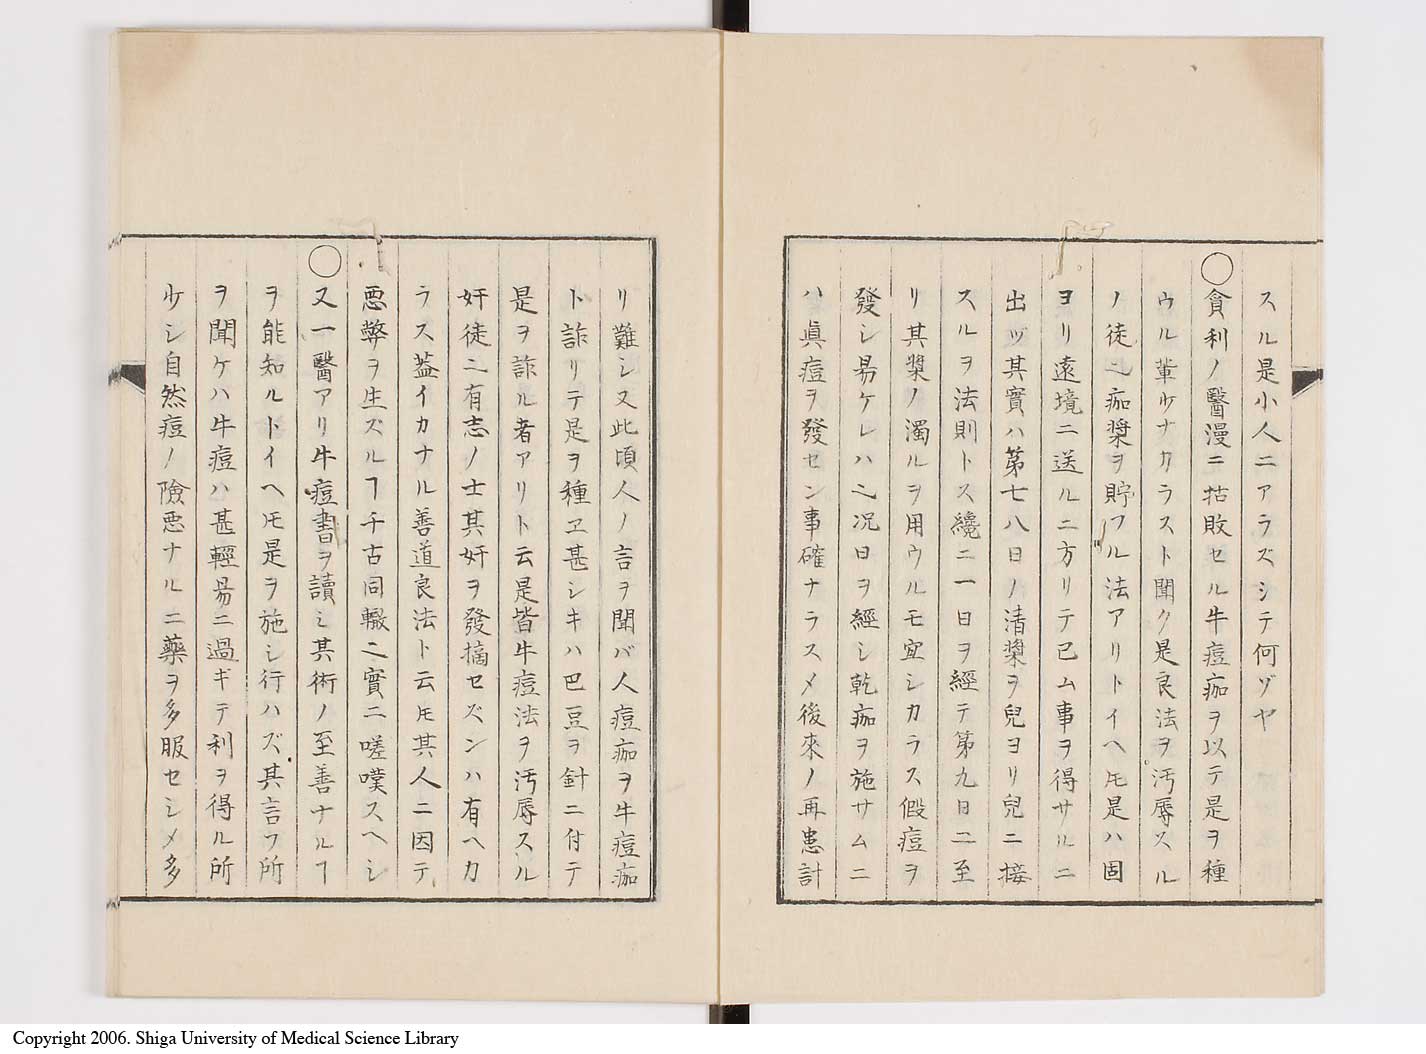 スル是小人ニアラズシテ何ゾヤ
◯貪利ノ醫漫ニ枯敗セル牛痘痂ヲ以テ是ヲ種
ウル輩少ナカラスト聞ク是良法ヲ汚辱スル
ノ徒也痂漿ヲ貯フル法アリトイヘ𪜈是ハ固
ヨリ遠境ニ送ルニ方リテ已ム事ヲ得サルニ
出ツ其實ハ第七八日ノ清漿ヲ兒ヨリ兒ニ接
スルヲ法則トス纔ニ一日ヲ經テ第九日ニ至
リ其漿ノ濁ルヲ用ウルモ宜シカラス假痘ヲ
發シ易ケレハ也况日ヲ經シ乾痂ヲ施サムニ
ハ眞痘ヲ發セン事確ナラス〆後來ノ再患計
リ難シ又此頃人ノ言ヲ聞バ人痘痂ヲ牛痘痂
ト詐リテ是ヲ種ヱ甚シキハ巴豆ヲ針ニ付テ
是ヲ詐ル者アリト云是皆牛痘法ヲ汚辱スル
奸徒也有志ノ士其奸ヲ發摘セズンハ有ヘカ
ラス葢イカナル善道良法ト云𪜈其人ニ因テ
悪弊ヲ生ズルヿ千古同轍也實ニ嗟嘆スヘシ
◯又一醫アリ牛痘書ヲ讀ミ其術ノ至善ナルヿ
ヲ能知ルトイヘ𪜈是ヲ施シ行ハズ其言フ所
ヲ聞ケハ牛痘ハ甚輕易ニ過ギテ利ヲ得ル所
少シ自然痘ノ險悪ナルニ藥ヲ多服セシメ多
Copyright 2006. Shiga University of Medical Science Library